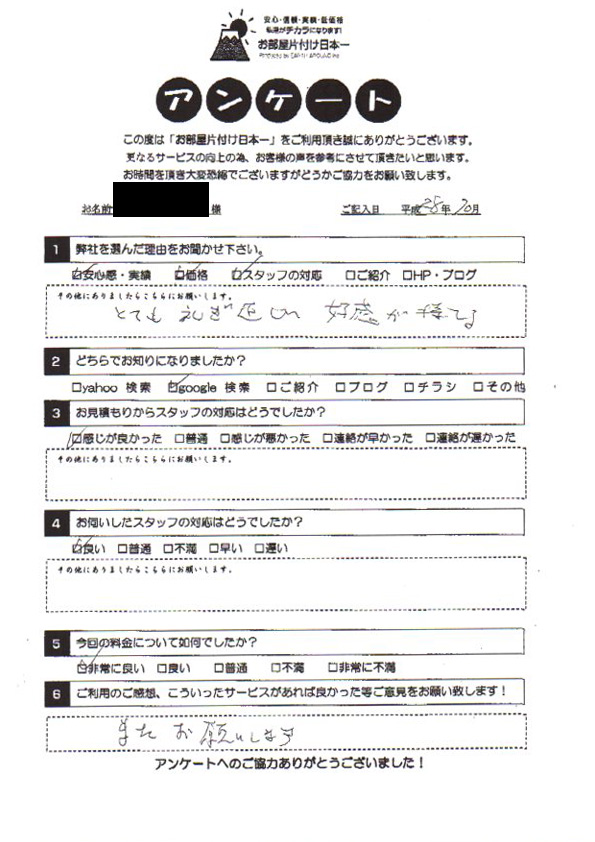 安心・信頼・実績・低価格
私達がチカラになります!
お部屋片付け日本一
アンケート
この度は「お部屋片付け日本一」をご利用頂き誠にありがとうございます。
更なるサービスの向上の為、お客様の声を参考にさせて頂きたいと思います。
お時間を頂き大変恐縮でございますがどうかご協力をお願い致します。
お名前 様 ご記入日 平成28年10月
1 弊社を選んだ理由をお聞かせ下さい。
☑安心感・実績 ☑価格 ☑スタッフの対応 □ご紹介 □HP・ブログ
その他にありましたらこちらにお願いします。
とても礼ぎ正しい 好感が持てる
2 どちらでお知りになりましたか?
□yahoo 検索 ☑google 検索 □ご紹介 □ブログ □チラシ □その他
3 お見積もりからスタッフの対応はどうでしたか?
☑感じが良かった □普通 □感じが悪かった □連絡が早かった □連絡が遅かった
その他にありましたらこちらにお願いします。
4 お伺いしたスタッフの対応はどうでしたか?
☑良い □普通 □不満 □早い □遅い
その他にありましたらこちらにお願いします。
5 今回の料金について如何でしたか?
☑非常に良い □良い □普通 □不満 □非常に不満
6 ご利用のご感想、こういったサービスがあれば良かった等ご意見をお願い致します!
またお願いします
アンケートへのご協力ありがとうございました!